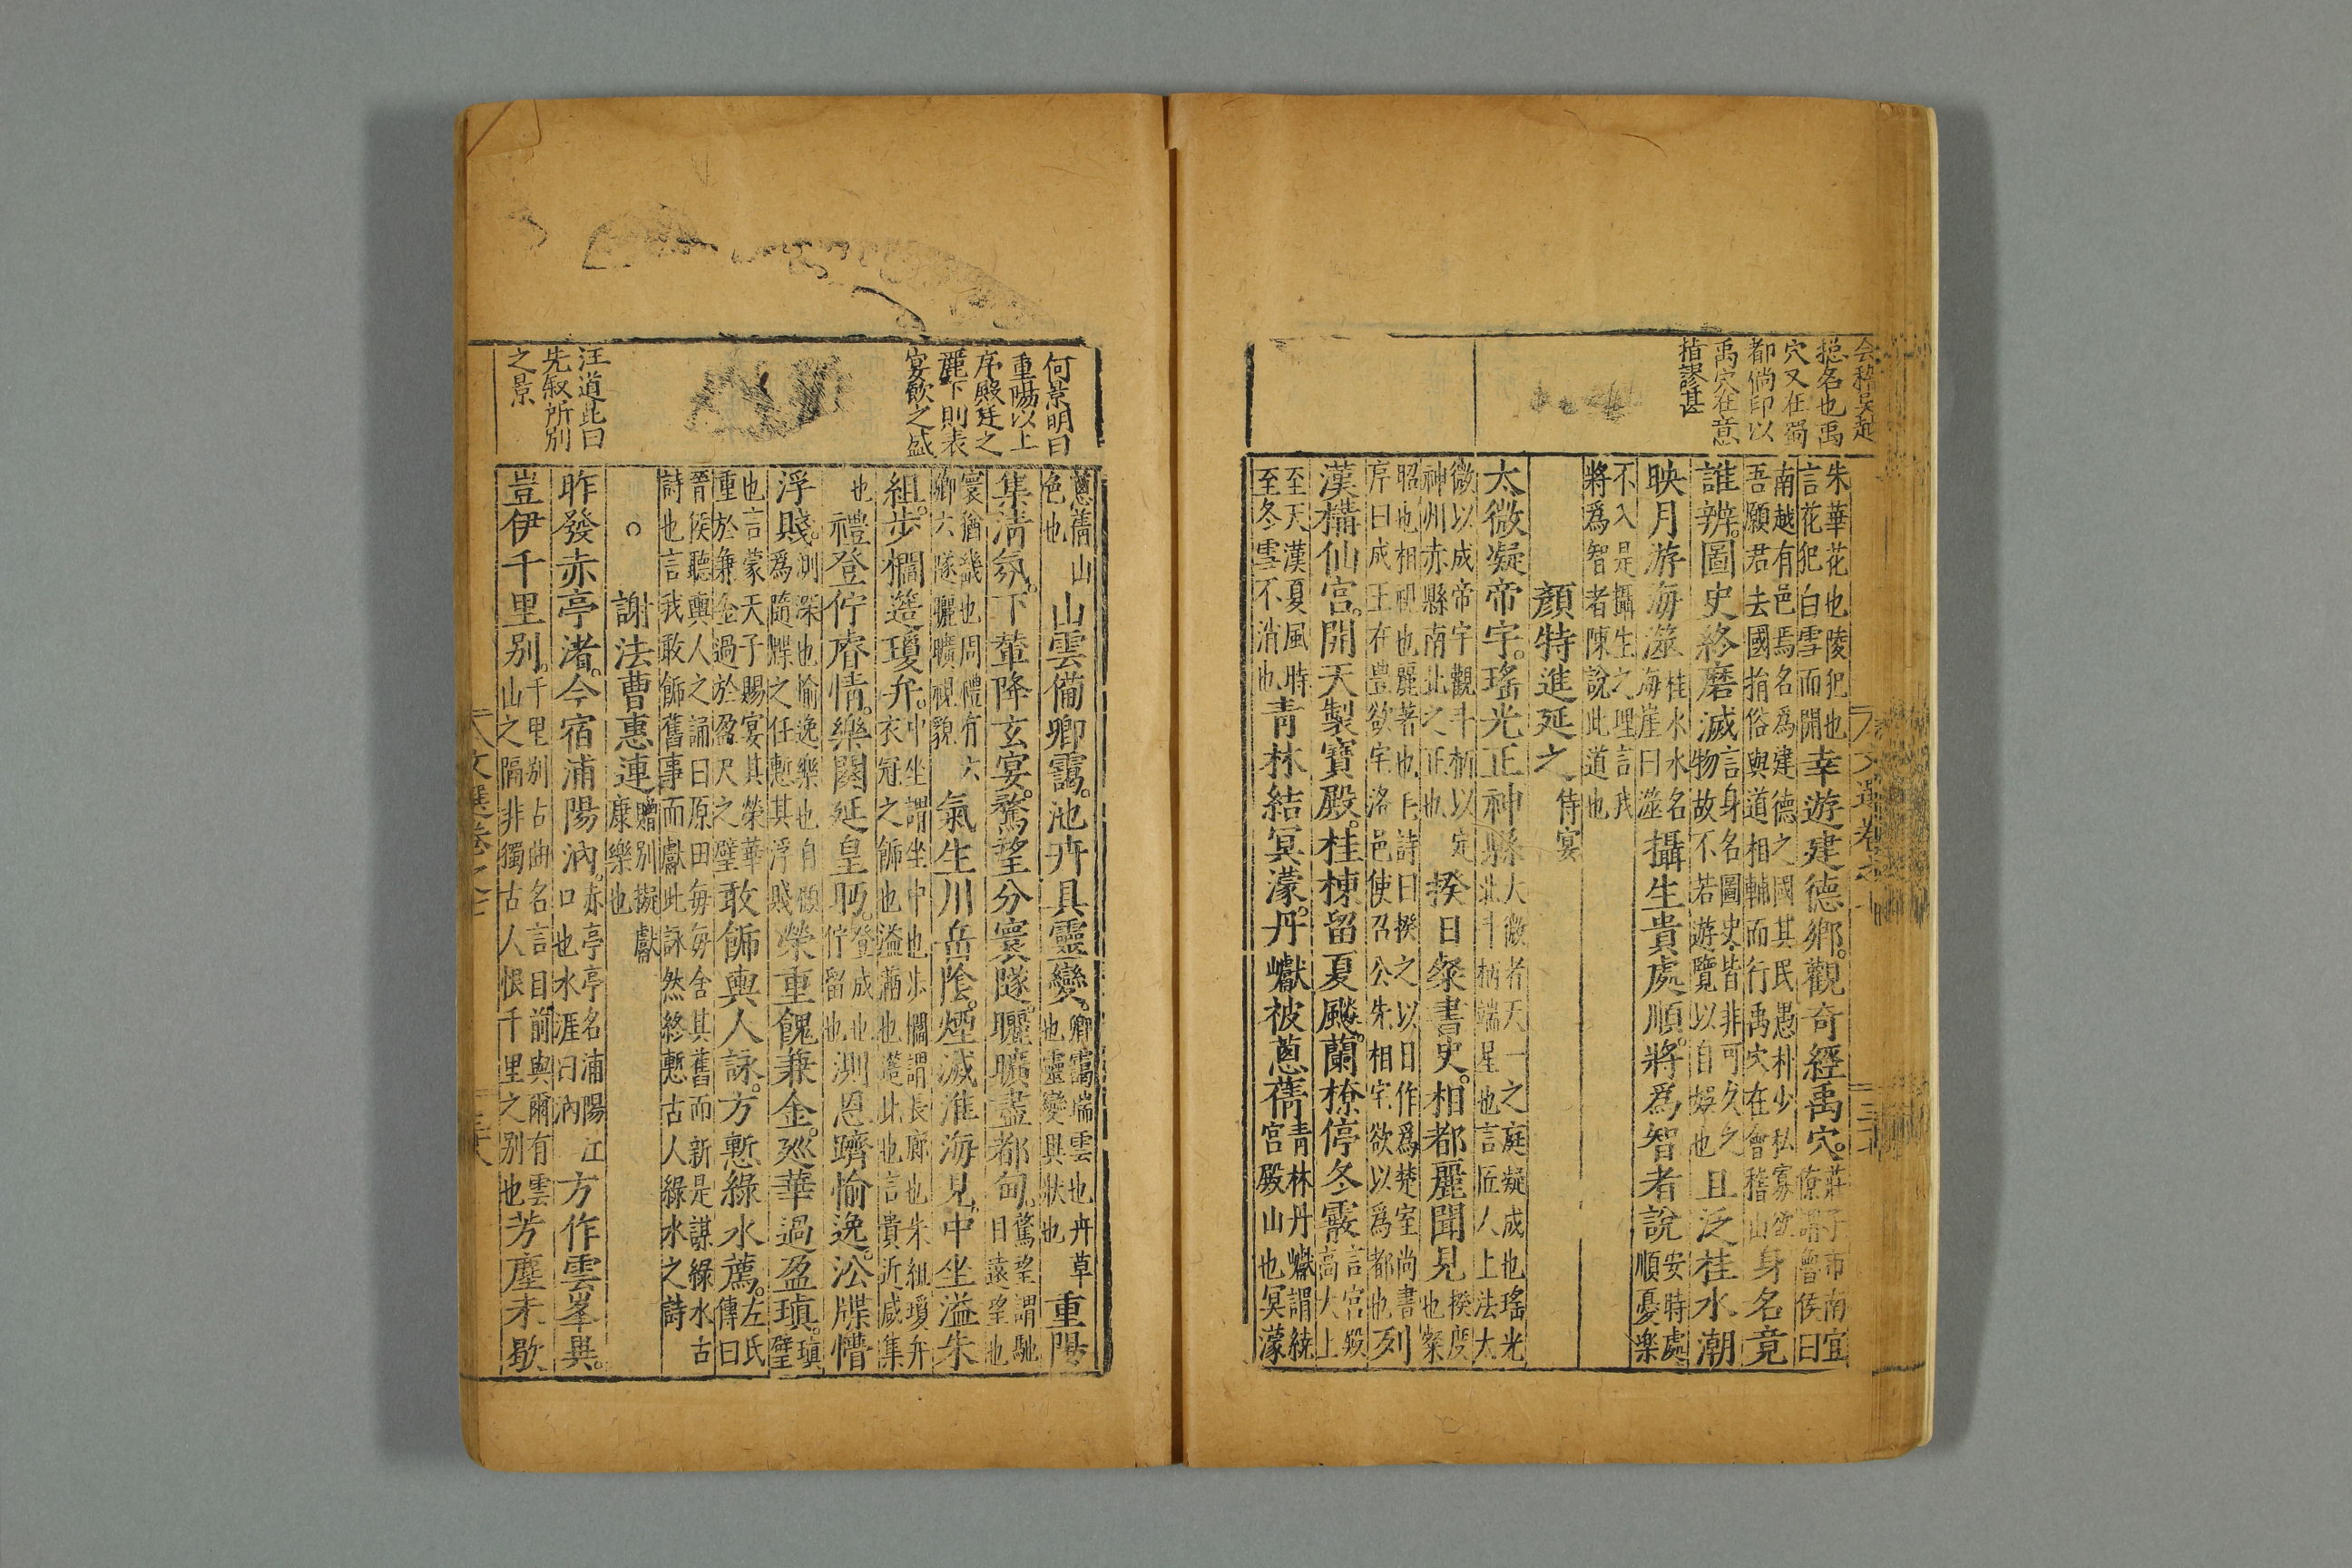 会稽吴起
揔名也禹
穴又在蜀
都倘印以
禹穴在意
指謬甚
朱華花也陵犯也
言花犯白雪而開
幸遊建德鄉。觀奇經禹穴。
莊子市南宜
僚謂魯侯曰
南越有邑焉名為建德之國其民愚朴少私寡欲
吾願君去國捐俗與道相輔而行禹穴在會稽山
身名竟
誰辨。圖史終磨滅
言身名圖史皆非可久之
物故不若遊覽以自娛也
且泛桂水潮
映月游海澨
桂水水名
海崖曰澨
攝生貴處順。將爲智者說
安時處
順憂樂
不入是攝生之理言我
將爲智者陳說此道也
顏特進延之 侍宴
太微凝帝宇。瑤光正神縣
大微者天一之庭凝成也瑤光
北斗柄端星也言匠人上法太
微以成帝宇觀斗柄以定
神州赤縣南北之正也
揆日粲書史。相都麗聞見
揆度
也粲
昭也相視也麗著也毛詩曰揆之以日作爲楚室尚書
序曰成王在豊欲宅洛邑使召公先相宅欲以爲都也
列
漢構仙宫。開天製寶殿。桂棟留夏飈。蘭橑停冬霰
言宫殿
高大上
至天漢夏風時
至冬雪不消也
青林結冥濛。丹巘被葱蒨
青林丹巘謂繞
宫殿山也冥濛
何景明曰
重陽以上
序殿廷之
麗下則表
宴飲之盛
汪道昆曰
先叙所別
之景
葱蒨山
色也
山雲備卿靄。池卉具靈變。
卿靄瑞雲也卉草
也靈變具狀也
重陽
集清氛。下輦降玄宴。騖望分寰隧。曬曠盡都甸。
騖望謂馳
目遠望也
寰猶畿也周禮有六
鄉六隧曬曠視貌
氣生川岳陰。煙滅淮海見。中坐溢朱
組。步櫩簉瓊弁。
中坐謂坐中也步櫩謂長廊也朱組瓊弁
衣冠之飾也溢滿也簉此也言貴近咸集
也
禮登佇睿情。樂闋延皇眄。
登成也
佇留也
測恩躋愉逸。㳂牒懵
浮賤。
測深也愉逸樂也自顧
爲隨牒之任慙其浮賤
榮重餽兼金。巡華過盈瑱。
瑱
璧
也言蒙天子賜宴其榮華
重於兼金過於盈尺之璧
敢飾輿人詠。方慙綠水薦。
左氏
傳曰
晉侯聽輿人之誦曰原田每每舍其舊而新是謀綠水古
詩也言我敢飾舊事而獻此詠然終慙古人綠水之詩
。謝法曹惠連
贈別擬獻
康樂也
昨發赤亭渚。今宿浦陽汭。
赤亭亭名浦陽江
口也水涯曰汭
方作雲峯異。
豈伊千里别。
千里别占曲名言目前與爾有雲
山之隔非獨古人恨千里之别也
芳塵未歇
文選卷之七